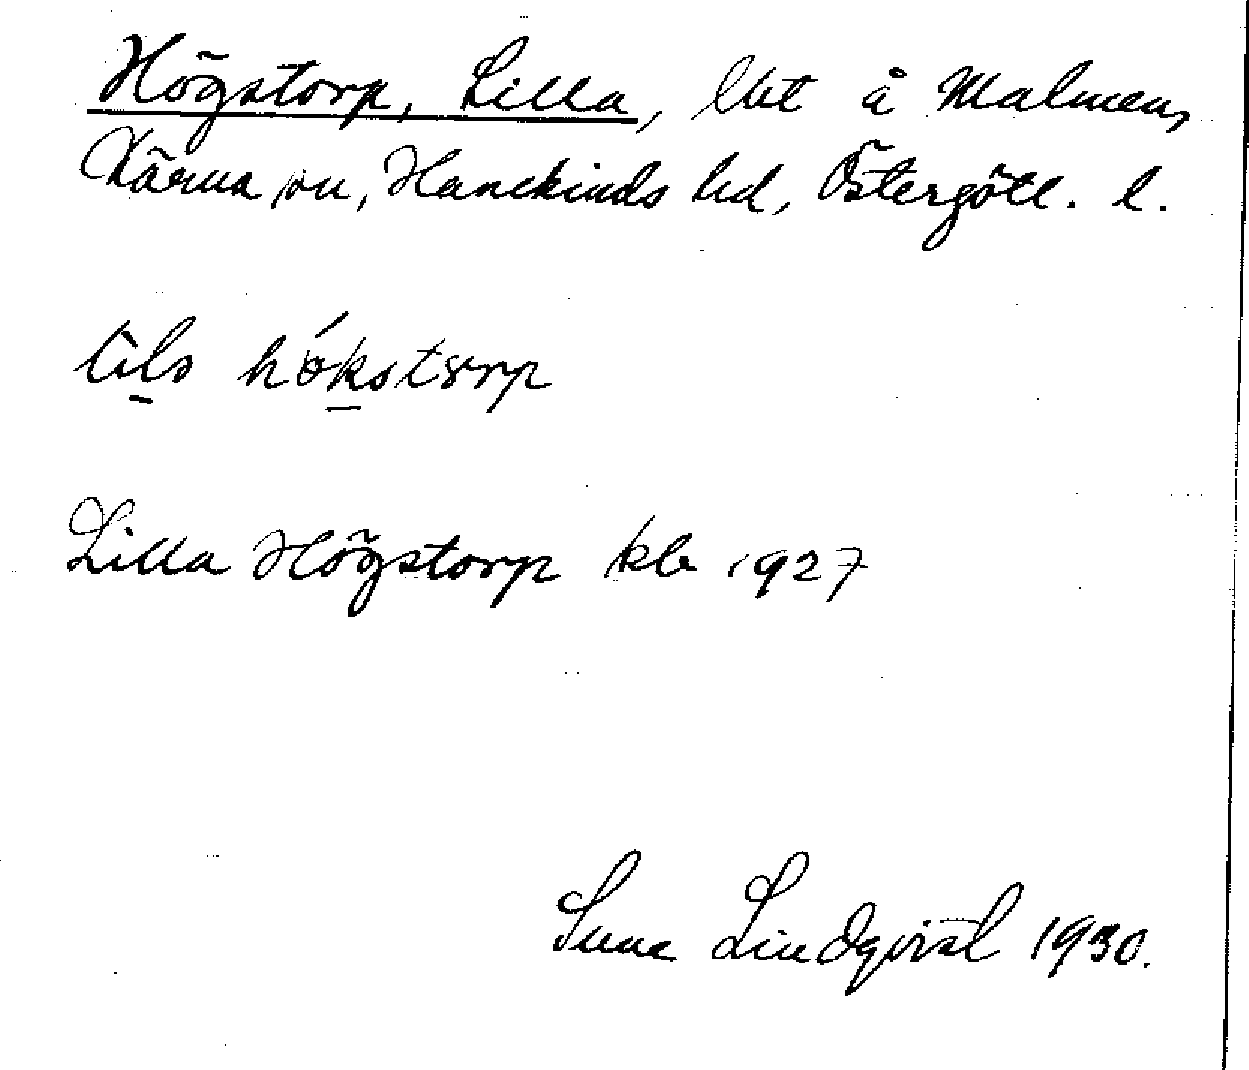 Högstorp, Lilla, lht å Malmen,
Kärna sn, Hanekinds hd, Östergötl. l.
lịls hókstorp
Lilla Högstorp kb 1927
Sune Lindqvist 1930.